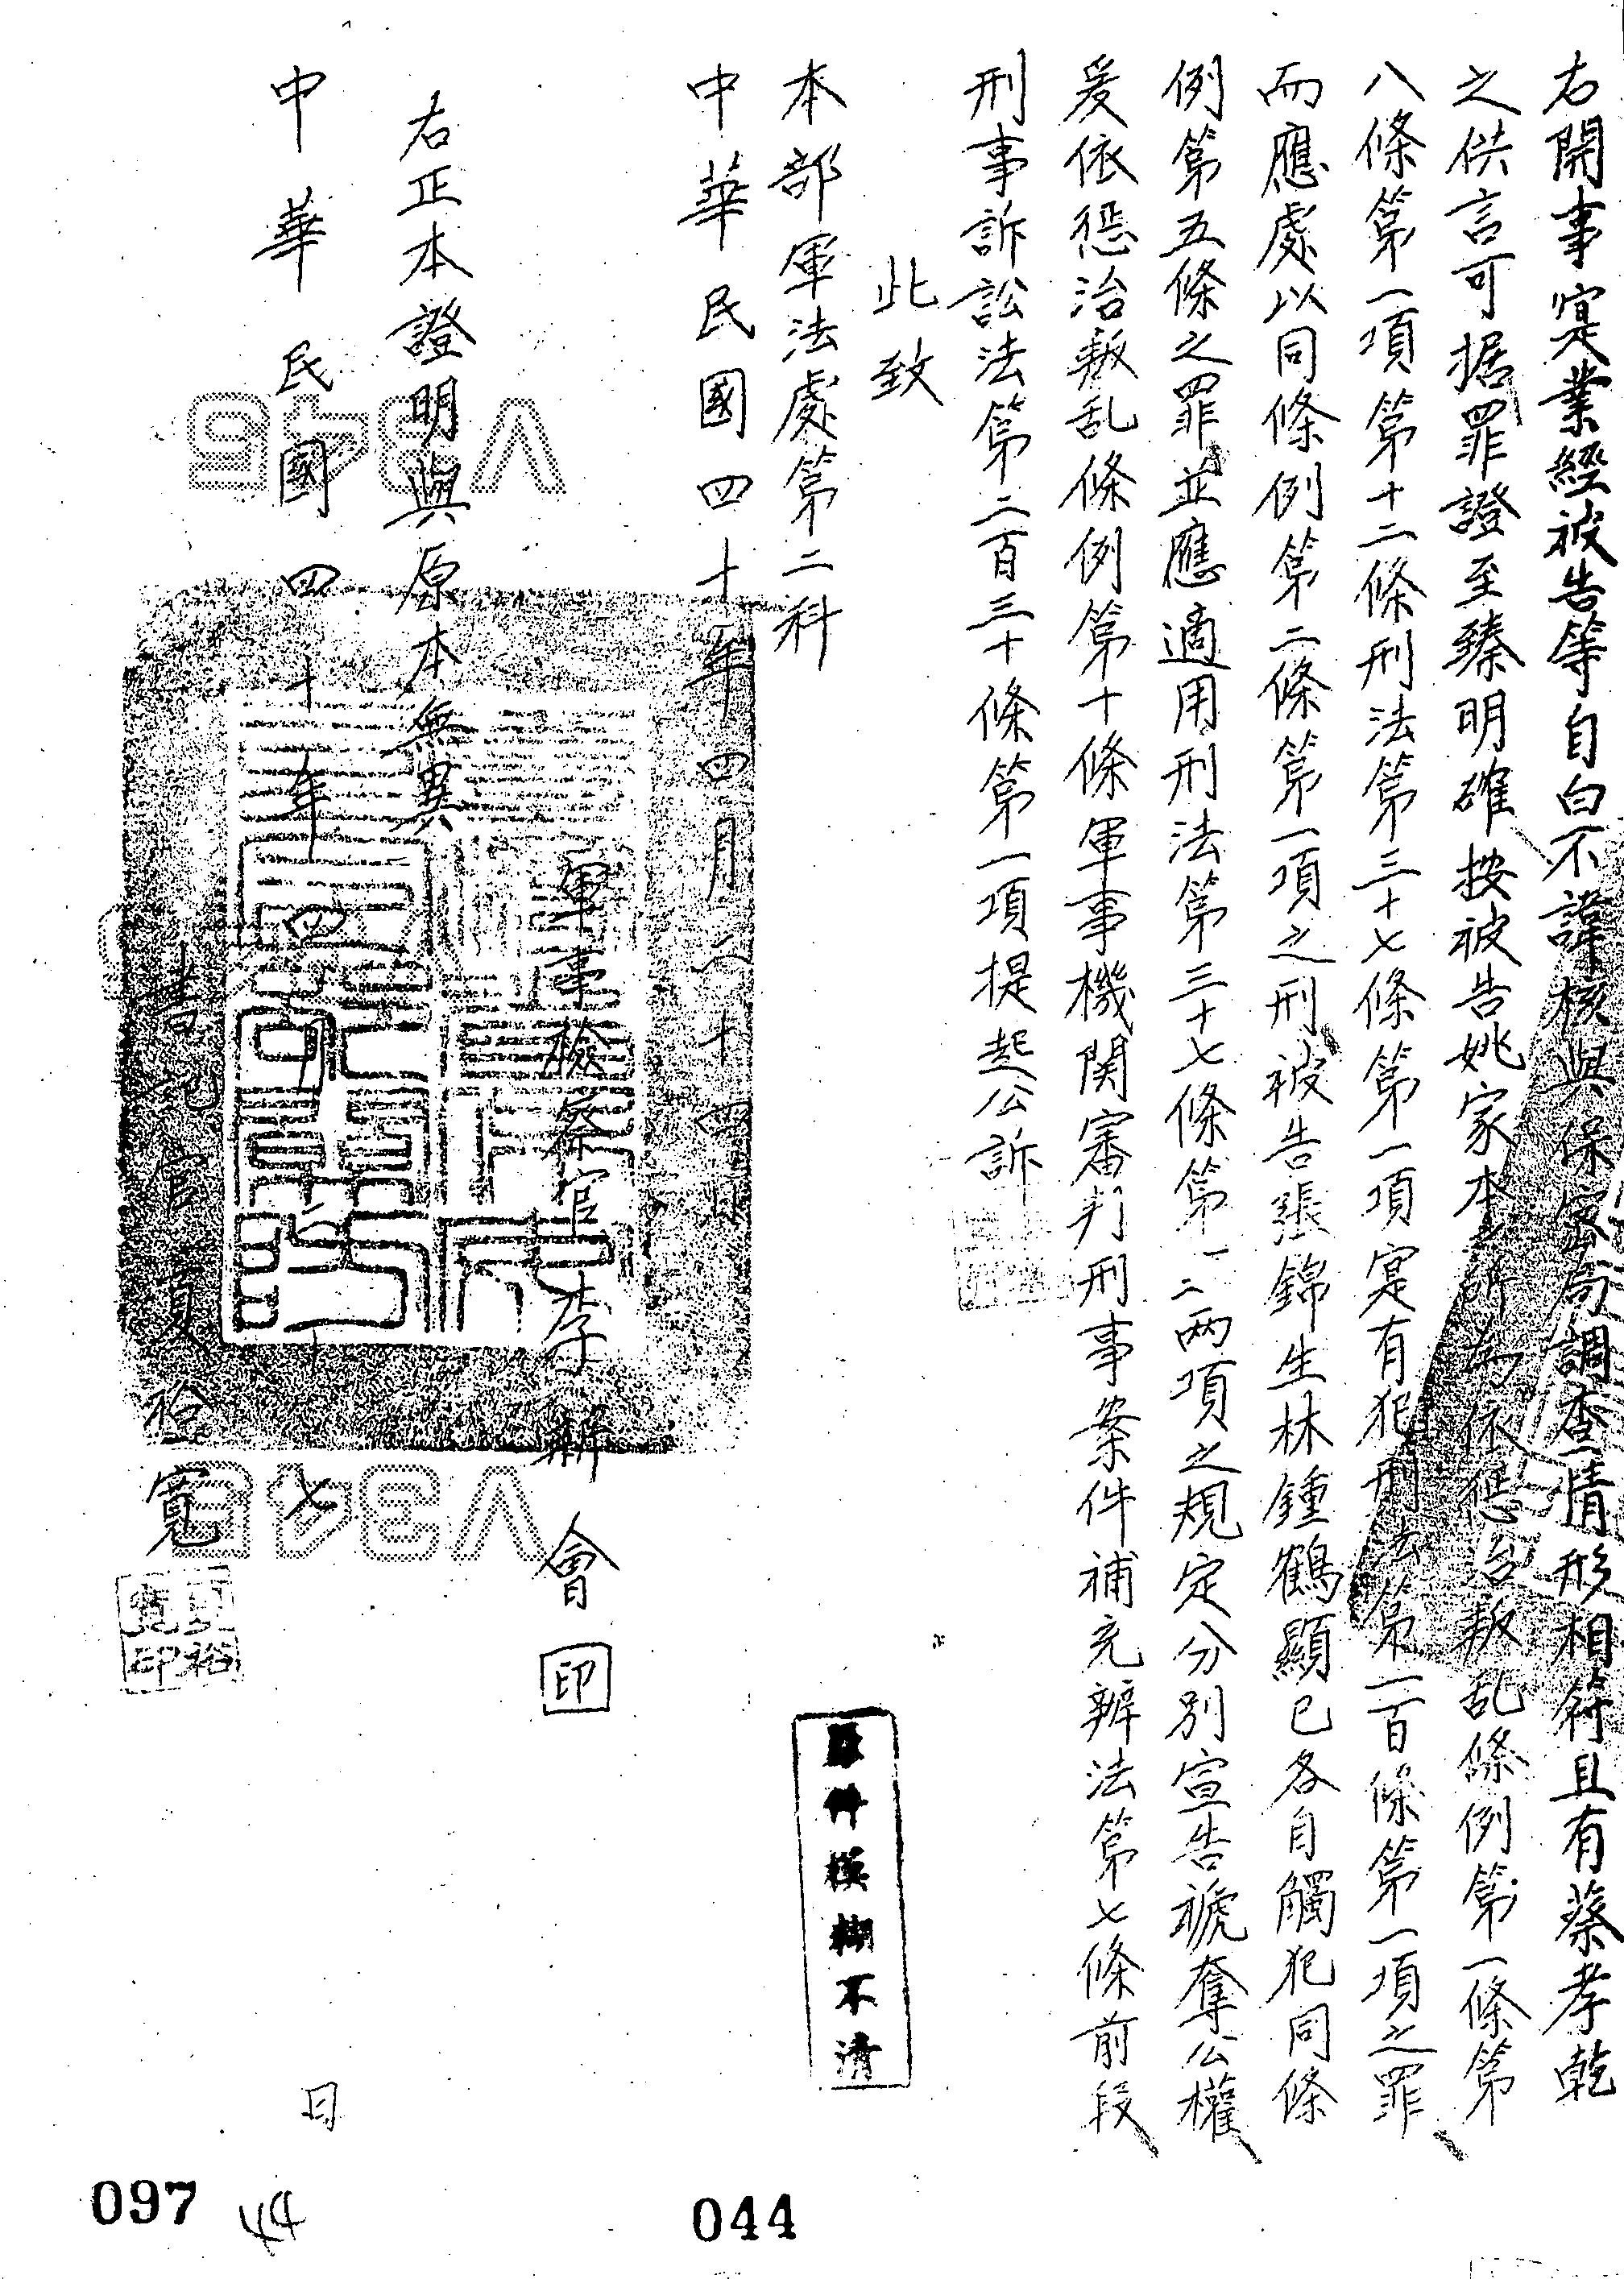 右開事寔業經被告等自白不諱核與保密局調查情形相符且有蔡孝乾
之供言可据罪證至臻明確按被告姚家本之所為依懲治叛乱條例第一條第
八條第一項第十二條刑法第三十七條第一項寔有犯刑法第一百條第一項之罪
而應處以同條例第二條第一項之刑被告張錦生林鍾鶴顯已各自觸犯同條
例第五條之罪並應適用刑法第三十七條第一二兩項之規定分別宣告褫奪公權
爰依懲治叛乱條例第十條軍事機関審判刑事案件補充辦法第七條前段
刑事訴訟法第二百三十條第一項提起公訴
此致
本部軍法處第二科
中華民國四十年四月二十四日
軍事檢察官李 會 印
右正本證明與原本無異
中華民國四十年四月 日
書記官夏裕寬
夏裕寬印
原件模糊不清
V345
V345
097
44
044